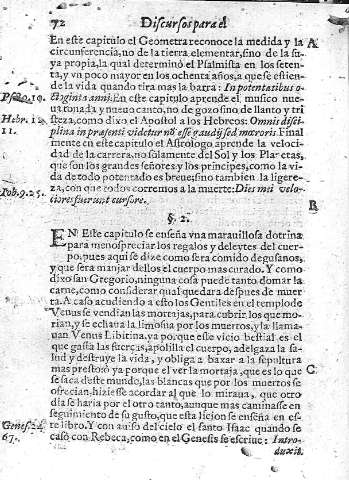 72
Discursos para el
En este capitulo el Geometra reconoce la medida y la
circunferencia, no de la tierra elementar, sino de la su
ya propia, la qual determinó el Psalmista en los seten-
ta, y vn poco mayor en los ochenta años, a que se estien-
de la vida quando tira mas la barra: In potentatibus o-
ctoginta anni. En este capitulo aprende el musico nue
ua tonada y nueuo canto, no de gozo sino de llanto y tri
steza, como dixo el Apostol a los Hebreos: Omnis disci
plina in presenti videtur nõ esse gaudij sed mœroris. Final
mente en este capitulo el Astrologo aprende la veloci-
dad de la carrera, no solamente del Sol y los Planetas,
que son los grandes señores y los principes, como la vi-
da de todo potentado es breue, sino tambien la ligere-
za, con que todos corremos a la muerte: Dies mei velo-
ciores fuerunt cursore.
A
Psal. 89. 10.
Hebr. 12.
11.
Iob. 9. 25.
B
§. 2.
EN Este capitulo se enseña vna marauillosa dotrina
para menospreciar los regalos y deleytes del cuer-
po, pues aqui se dize como sera comido de gusanos,
y que sera manjar dellos el cuerpo mas curado. Y como
dixo san Gregorio, ninguna cosa puede tanto domar la
carne, como considerar qual quedara despues de muer
ta. A caso acudiendo a esto los Gentiles en el templo de
Venus se vendian las mortajas, para cubrir los que mo-
rian, y se echaua la limosna por los muertos, y la llama-
uan Venus Libitina, ya porque esse vicio bestial es el
que gasta las fuerças, apolilla el cuerpo, adelgaza la sa-
lud y destruye la vida, y obliga a baxar a la sepultura
mas presto: o ya porque el ver la mortaja, que es lo que
se saca deste mundo, las blancas que por los muertos se
ofrecian, hiziesse acordar al que lo miraua, que otro
dia se haria por el otro tanto, aunque mas caminasse en
seguimiento de su gusto, que esta licion se enseña en es-
te libro. Y con auiso del cielo el santo Isaac quando se
caso con Rebeca, como en el Genesis se escriue: Intro-
duxit
C
Genes. 24.
67.